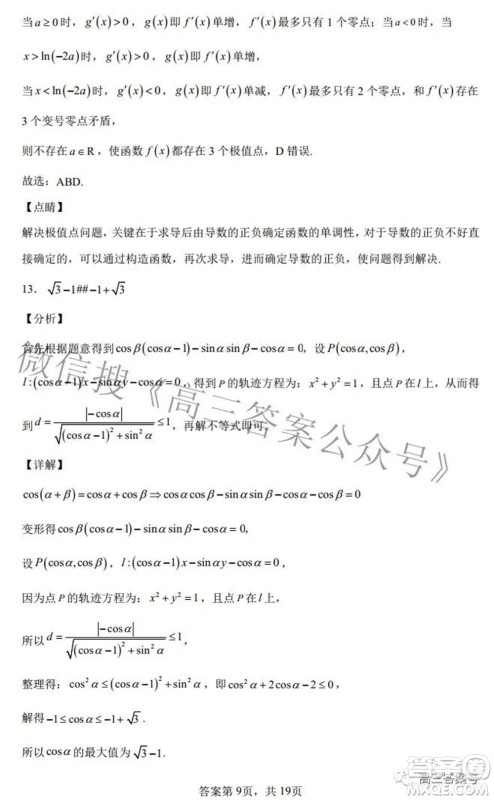 当 a ≥ 0 时，g′(x) > 0，g(x) 即 f′(x) 单增，f′(x) 最多只有 1 个零点；当 a < 0 时，当
x > ln(−2a) 时，g′(x) > 0，g(x) 即 f′(x) 单增，
当 x < ln(−2a) 时，g′(x) < 0，g(x) 即 f′(x) 单减，f′(x) 最多只有 2 个零点，和 f′(x) 存在
3 个变号零点矛盾，
则不存在 a ∈ R，使函数 f(x) 都存在 3 个极值点，D 错误.
故选：ABD.
【点睛】
解决极值点问题，关键在于求导后由导数的正负确定函数的单调性，对于导数的正负不好直
接确定的，可以通过构造函数，再次求导，进而确定导数的正负，使问题得到解决.
13．√3−1##−1+√3
【分析】
首先根据题意得到 cosβ(cosα−1)−sinαsinβ−cosα=0，设 P(cosα,cosβ)，
l:(cosα−1)x−sinαy−cosα=0，得到 P 的轨迹方程为：x²+y²=1，且点 P 在 l 上，从而得
到 d=|−cosα|/√((cosα−1)²+sin²α)≤1，再解不等式即可.
【详解】
cos(α+β)=cosα+cosβ⇒cosαcosβ−sinαsinβ−cosα−cosβ=0
变形得 cosβ(cosα−1)−sinαsinβ−cosα=0，
设 P(cosα,cosβ)，l:(cosα−1)x−sinαy−cosα=0，
因为点 P 的轨迹方程为：x²+y²=1，且点 P 在 l 上，
所以 d=|−cosα|/√((cosα−1)²+sin²α)≤1，
整理得：cos²α≤(cosα−1)²+sin²α，即 cos²α+2cosα−2≤0，
解得 −1≤cosα≤−1+√3.
所以 cosα 的最大值为 √3−1.
答案第 9页，共 19页
微信搜《高三答案公众号》
高三答案号
答案圈
MXQE.COM